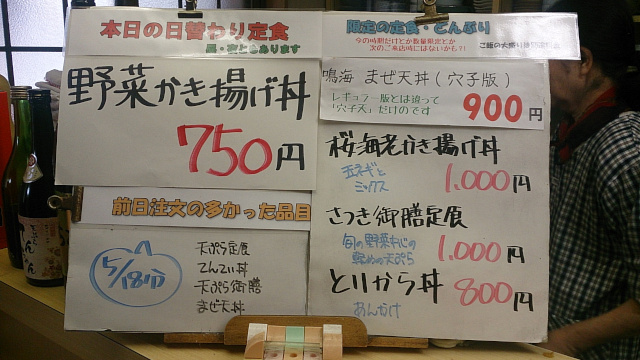 本日の日替わり定食
昼・夜ともあります
野菜かき揚げ丼
750円
前日注文の多かった品目
5/18分
天ぷら定食
てんてい丼
天ぷら御膳
まぜ天丼
限定の定食・どんぶり
今の時期だけとか数量限定とか
次のご来店時にはないかも?!
ご飯の大盛り
鳴海 まぜ天丼(穴子版)
レギュラー版とは違って
「穴子天」だけのです
900円
桜海老かき揚げ丼
玉ネギと
ミックス
1.000円
さつき御膳定食
旬の野菜中心の
軽めの天ぷら
1.000円
とりから丼
あんかけ
800円